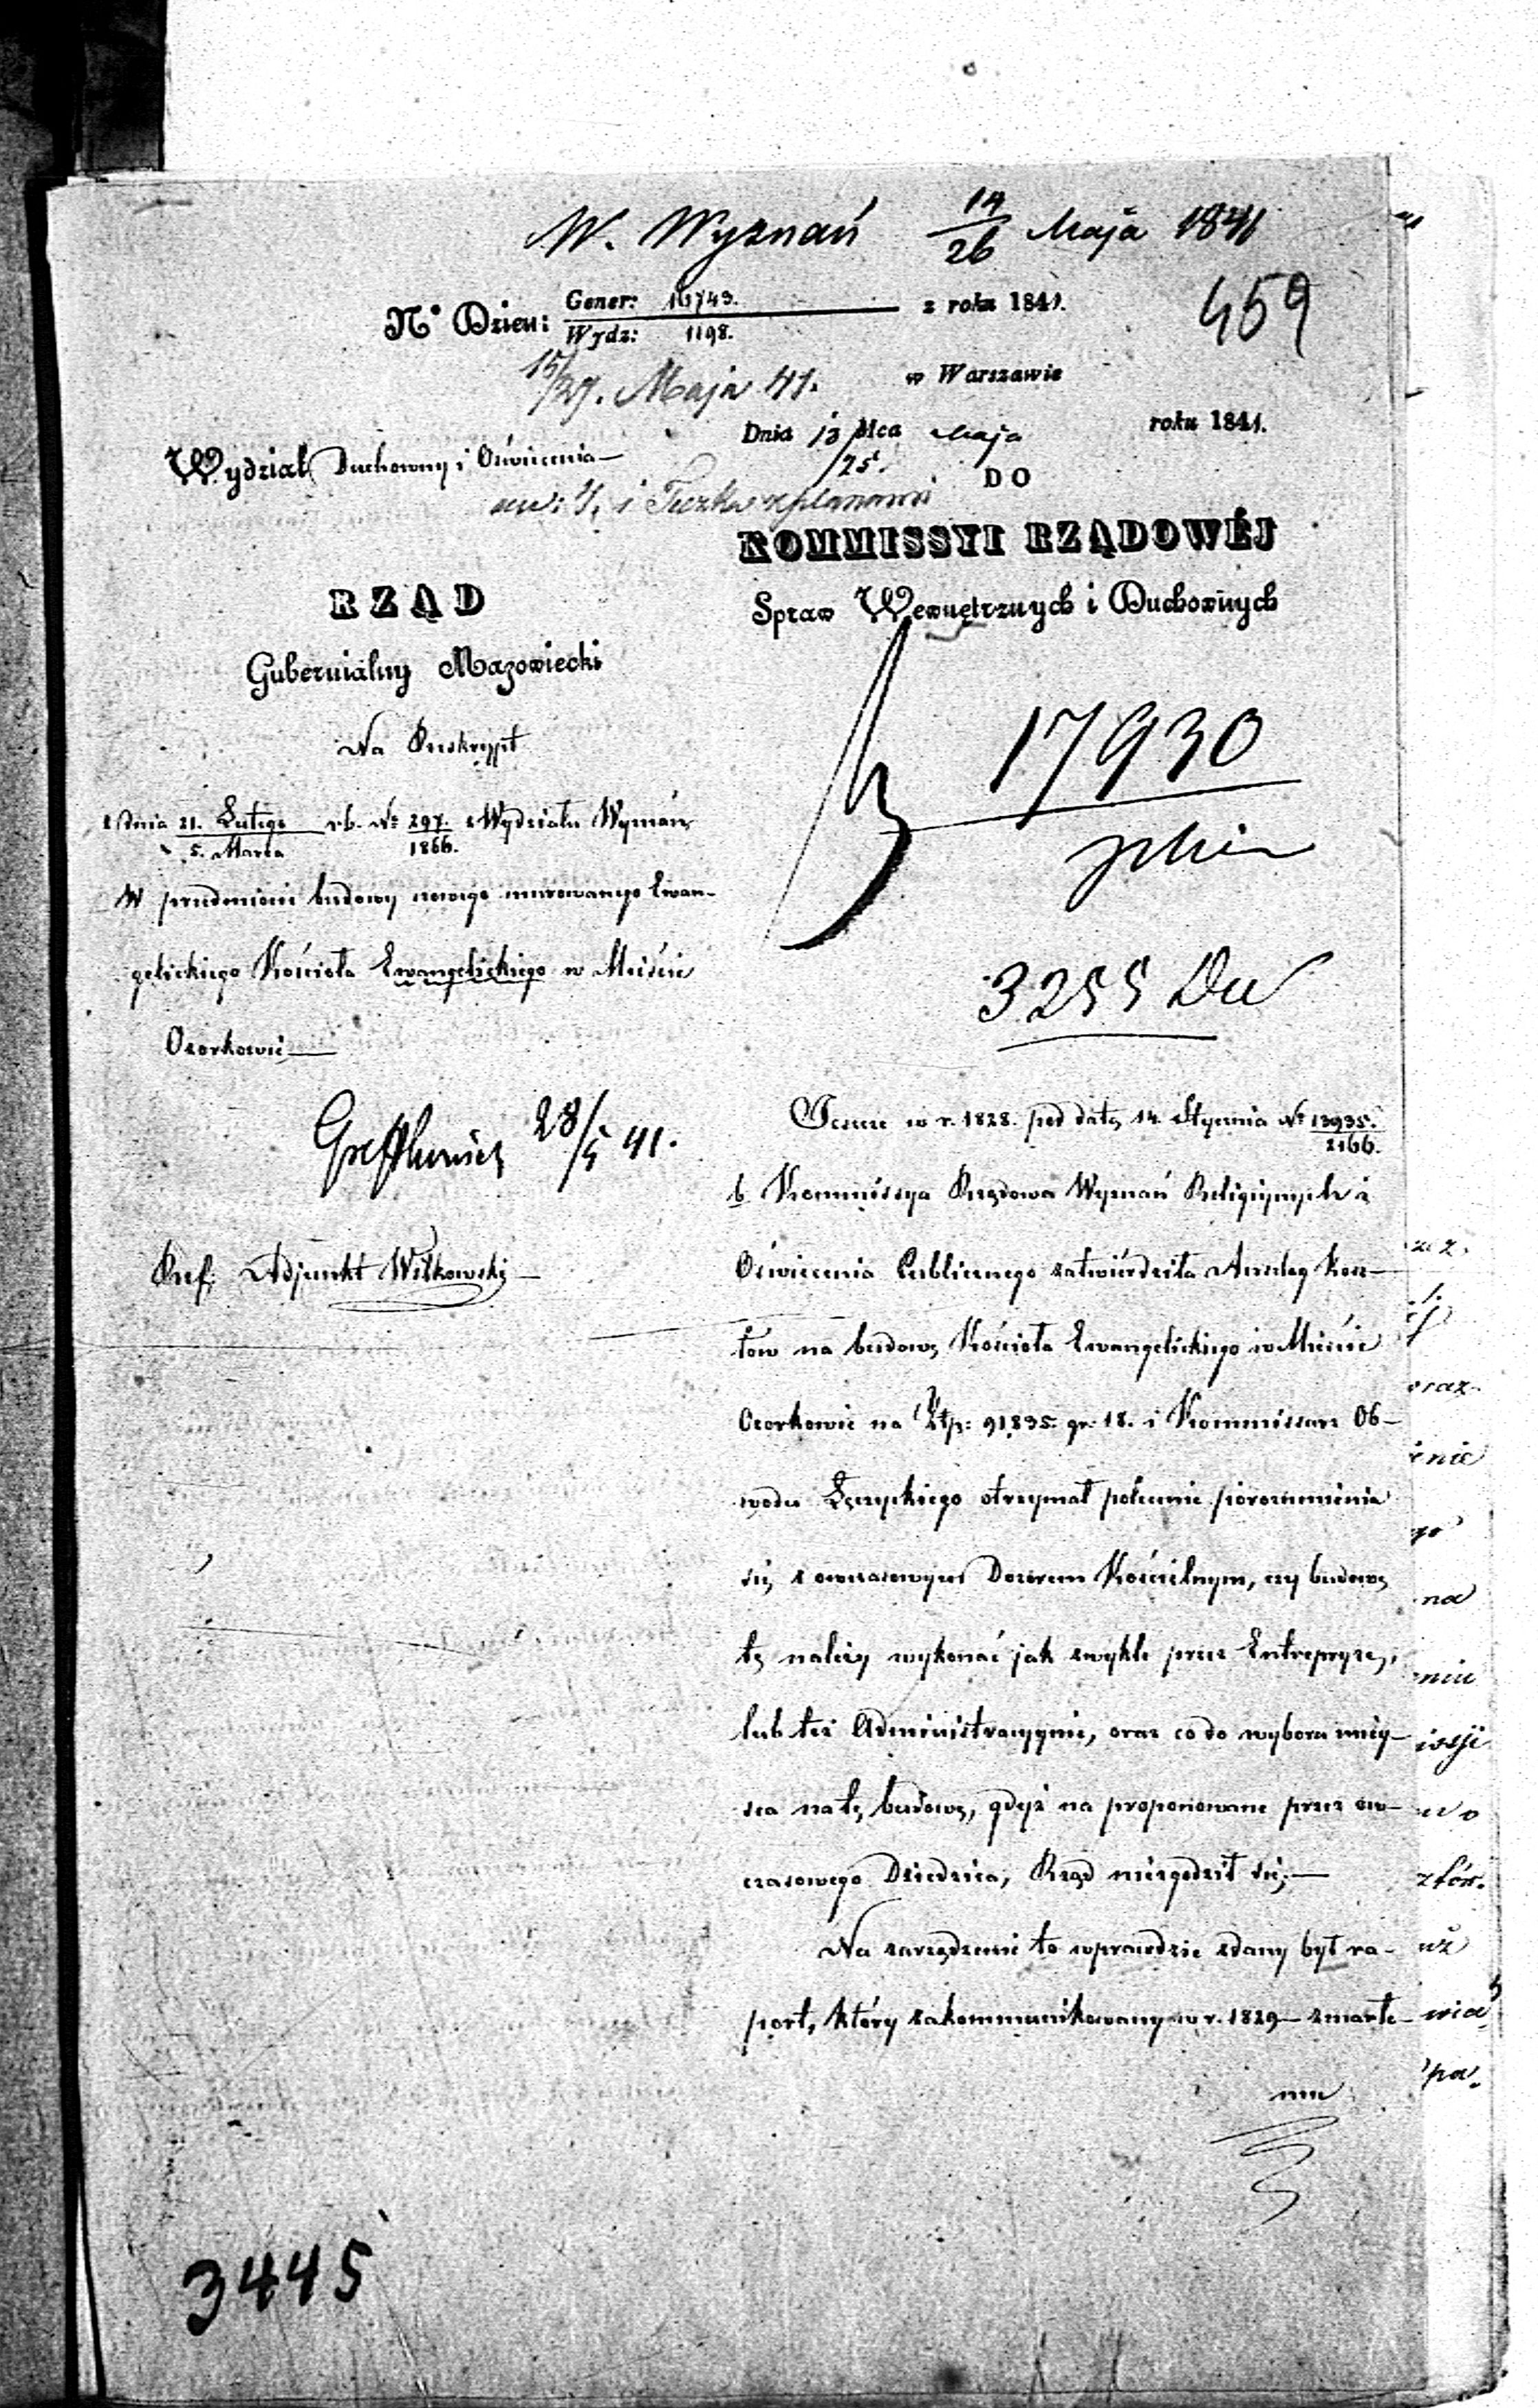 W. Wyznań 14/26 Maja 1841
459
No Dzien: Gener: 16743. z roku 1841.
Wydz: 1198.
15/27. Maja 41. w Warszawie
Dnia 13/25 Mca Maja roku 1841.
Wydział Duchowny i Oświecenia
DO
KOMMISSYI RZĄDOWÉJ
Spraw Wewnętrznych i Duchownych
RZĄD
Gubernialny Mazowiecki
17930
3255
Na Reskrypt
z dnia 21. Lutego / 5. Marca r.b. No 297. / 1866. z Wydziału Wyznań,
W przedmiocie budowy nowego murowanego Ewan-
gelickiego Kościoła Ewangelickiego w Mieście
Ozorkowie
28/5 41.
Ref: Adjunkt Witkowski
Jeszcze w r. 1828. pod datą 14. Stycznia No 13935. / 2166.
b. Kommissya Rządowa Wyznań Religijnych i
Oświecenia Publicznego zatwierdziła Anszlag kosz-
tów na budowę Kościoła Ewangelickiego w Mieście
Ozorkowie na Złp: 91,835. gr. 18. i Kommissarz Ob-
wodu Łęczyckiego otrzymał polecenie porozumienia
się z owczasowym Dozorem Kościelnym, czy budowę
tę należy wykonać jak zwykle przez Entrepryzę,
lub też Administracyjnie, oraz co do wyboru miey-
sca na tę budowę, gdyż na proponowane przez ow-
czasowego Dziedzica, Rząd niezgodził się;
Na zarządzenie to wprawdzie zdany był ra-
port, który zakommunikowany w r. 1829 zmarłe-
mu
3445